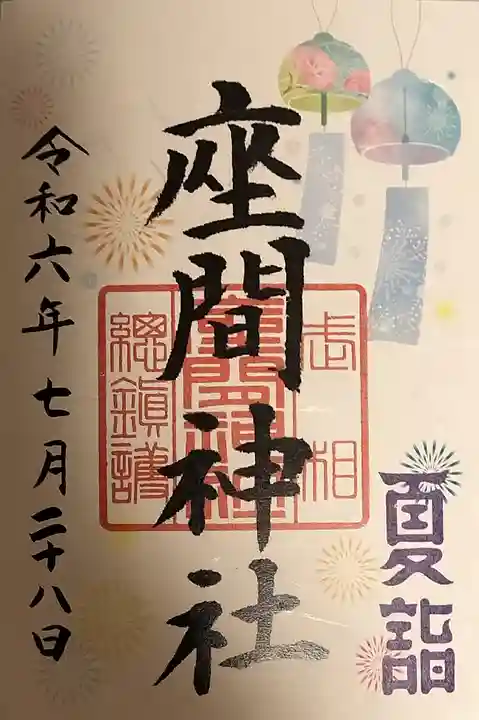 夏詣
武相
座間神社
總鎮護
座間神社
令和六年七月二十八日